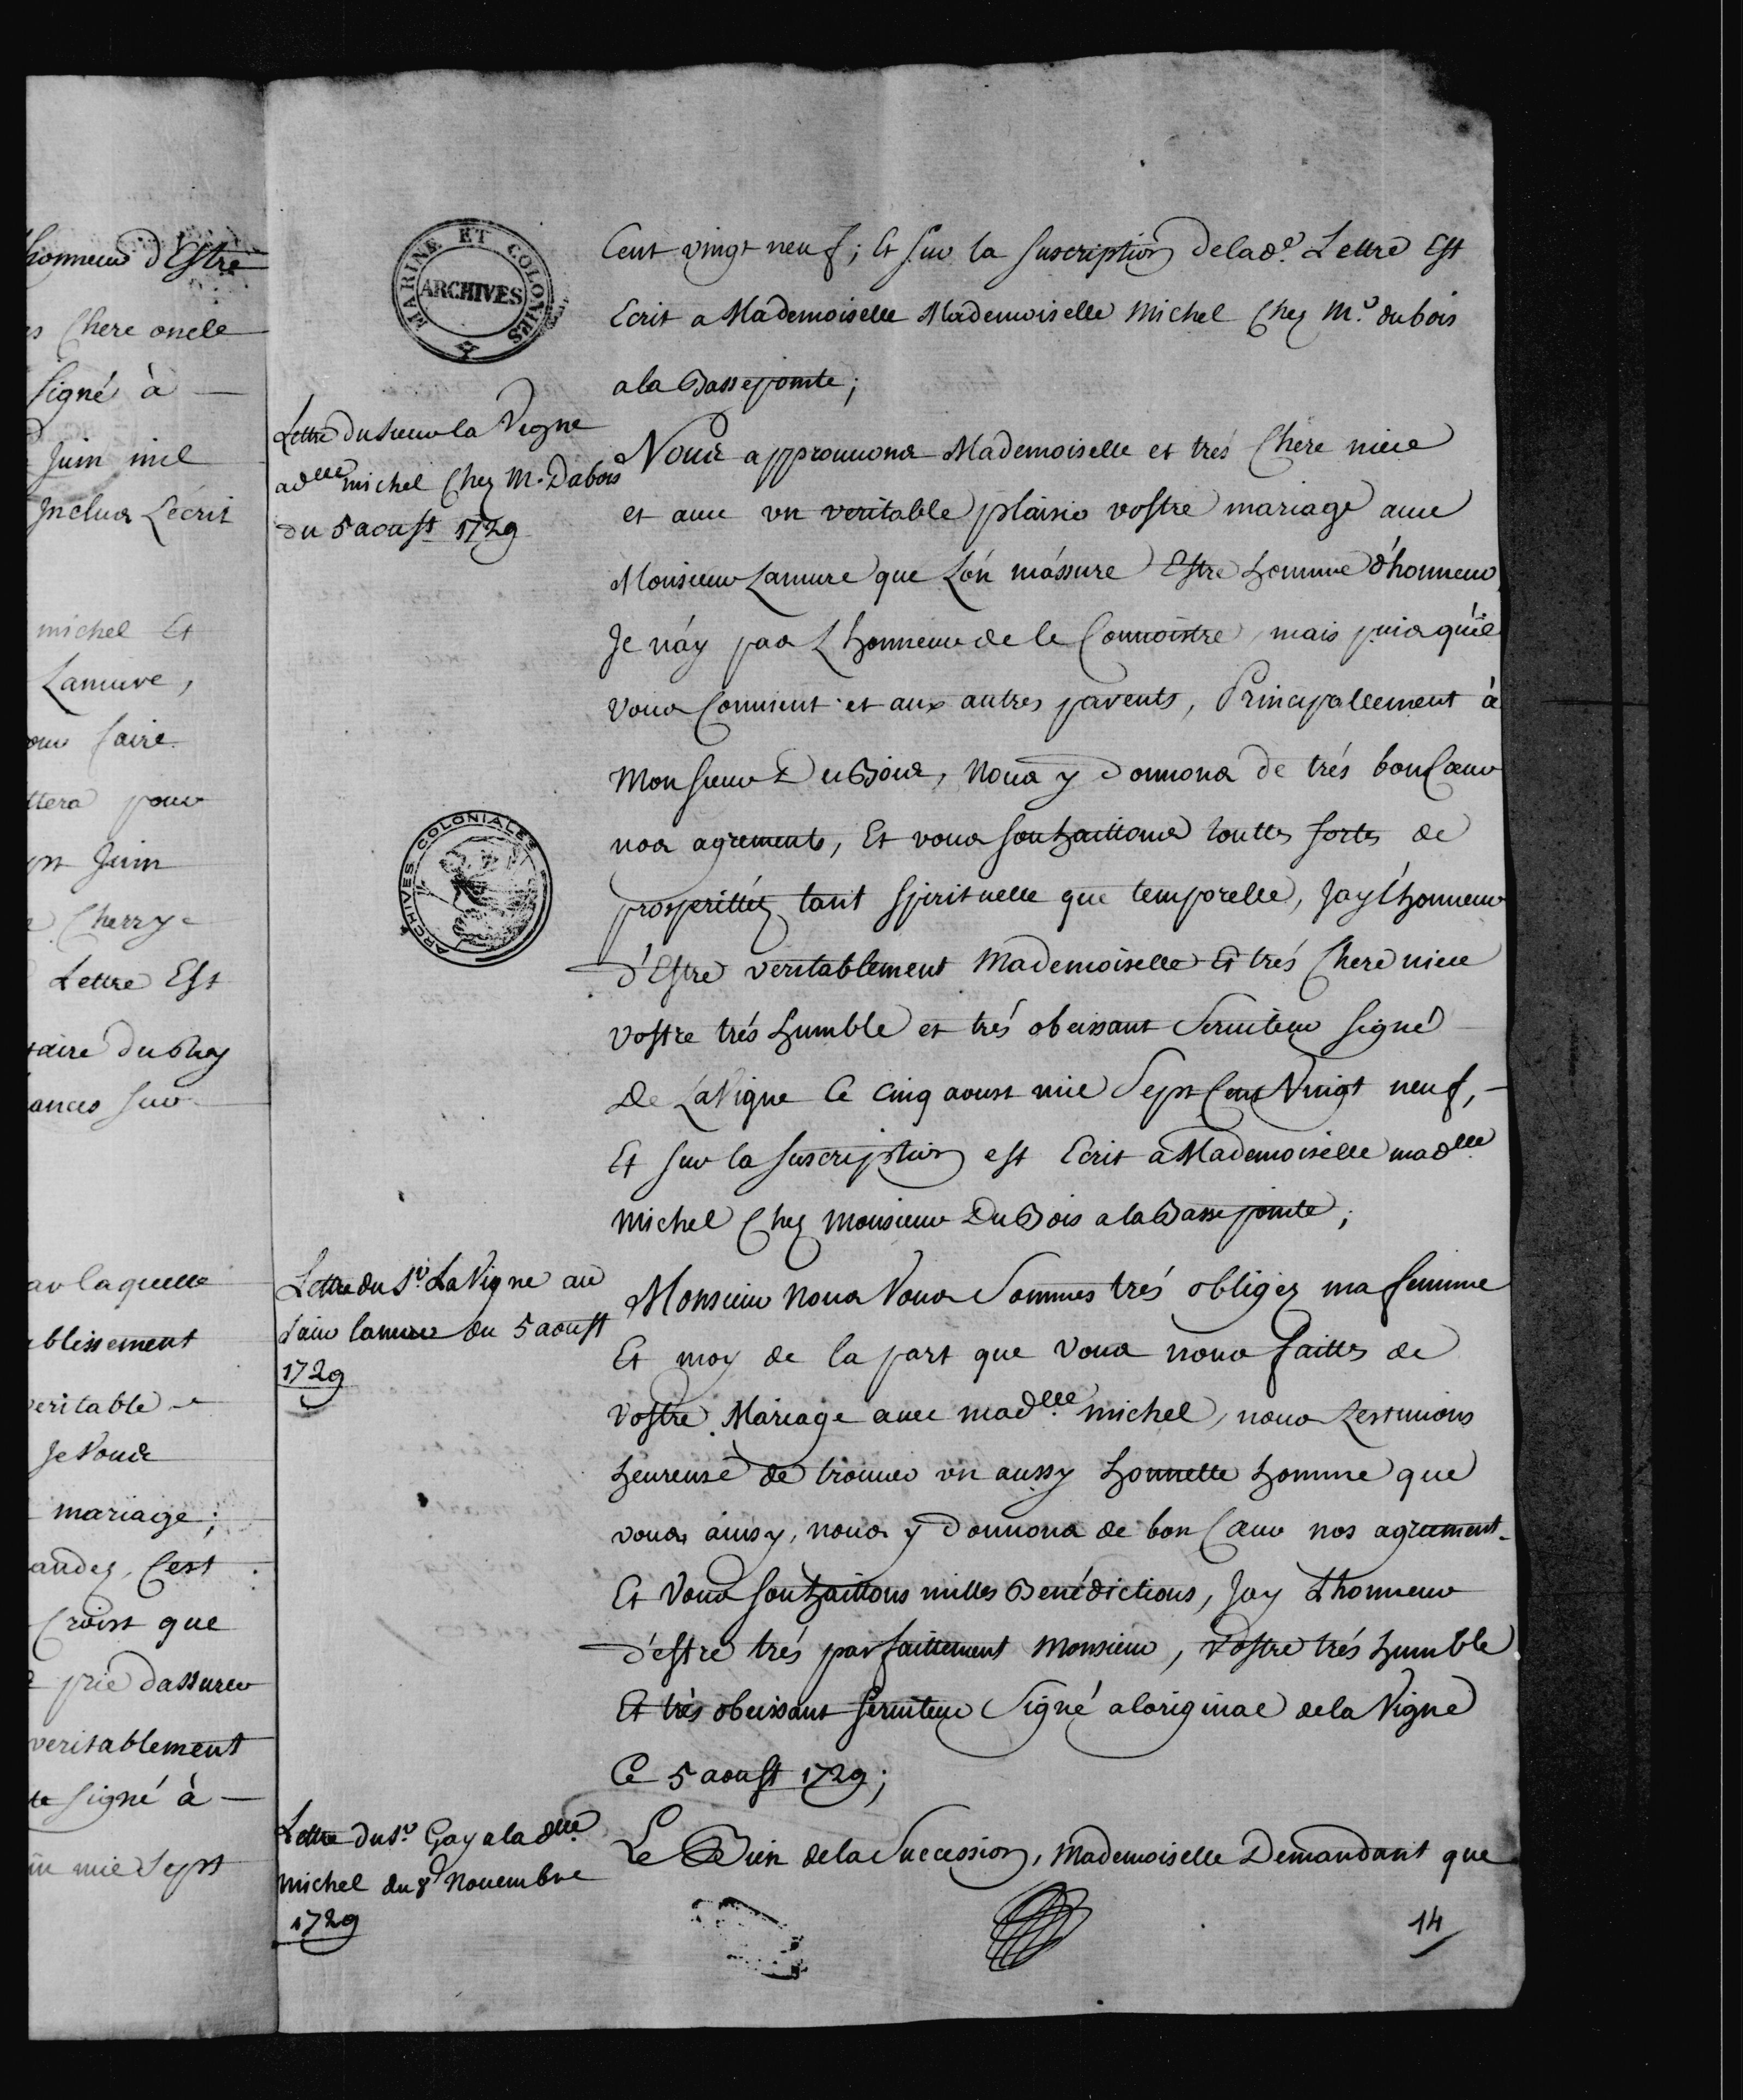 honneur d'Estre
s Chere oncle
signé à
Juin mil
Jnclus L'écrit
michel Et
Lamure,
our faire
ttera pour
pt Juin
Cherry
Lettre Est
taire du Roy
ances sur
ar laquelle
ablissement
veritable
Je Vous
mariage;
andez, C'est
Croist que
prie dassurer
veritablement
te signé à
in mil Sept
MARINE ET COLONIES
ARCHIVES
Cent vingt neuf; Et sur la suscription delad.e Lettre Est
Ecrit a Mademoiselle Mademoiselle Michel Chez M.r dubois
a la Basse pointe;
Lettre du sieur la Vigne
a dlle michel Chez M. Dubois
du 5 aoust 1729
Nous approuuons Mademoiselle et trés Chere niece
et auec vn veritable plaisir vostre mariage auec
Monsieur Lamure que L'on m'assure Estre homme d'honneur,
Je n'ay pas L'honneur de le Connoistre, mais puis qu'il
vous Conuient et aux autres parents, Principallement à
Monsieur DuBois, Nous y donnons de trés bon Cœur
nos agrements, Et vous souhaittons touttes sortes de
prosperittéz tant spirituelle que temporelle, Jay l'honneur
d'Estre veritablement Mademoiselle Et trés Chere niece
vostre trés humble et trés obeissant Seruiteur signé
De LaVigne Ce cinq aoust mil Sept Cent Vingt neuf,
Et sur la suscription est Ecrit a Mademoiselle madlle
Michel Chez Monsieur DuBois a la Basse pointe;
ARCHIVES COLONIALES
Lettre du S.r LaVigne au
Sieur lamure du 5 aoust
1729
Monsieur Nous Vous Sommes trés obligez ma femme
Et moy de la part que Vous nous faittes de
vostre Mariage auec madlle michel, nous Lestimons
heureuse de trouuer vn aussy honnette homme que
vous ainsy, nous y Donnons de bon Cœur nos agrement
Et Vous souhaittons milles Benédictions, Jay Lhonneur
d'estre trés parfaittement Monsieur, Vostre trés humble
Et trés obeissant seruiteur Signé a loriginal de la Vigne
Ce 5 aoust 1729;
Lettre du S.r Gay a la dlle
michel du 8 Nouembre
1729
Le Bien de la Succession, Mademoiselle Demandant que
14